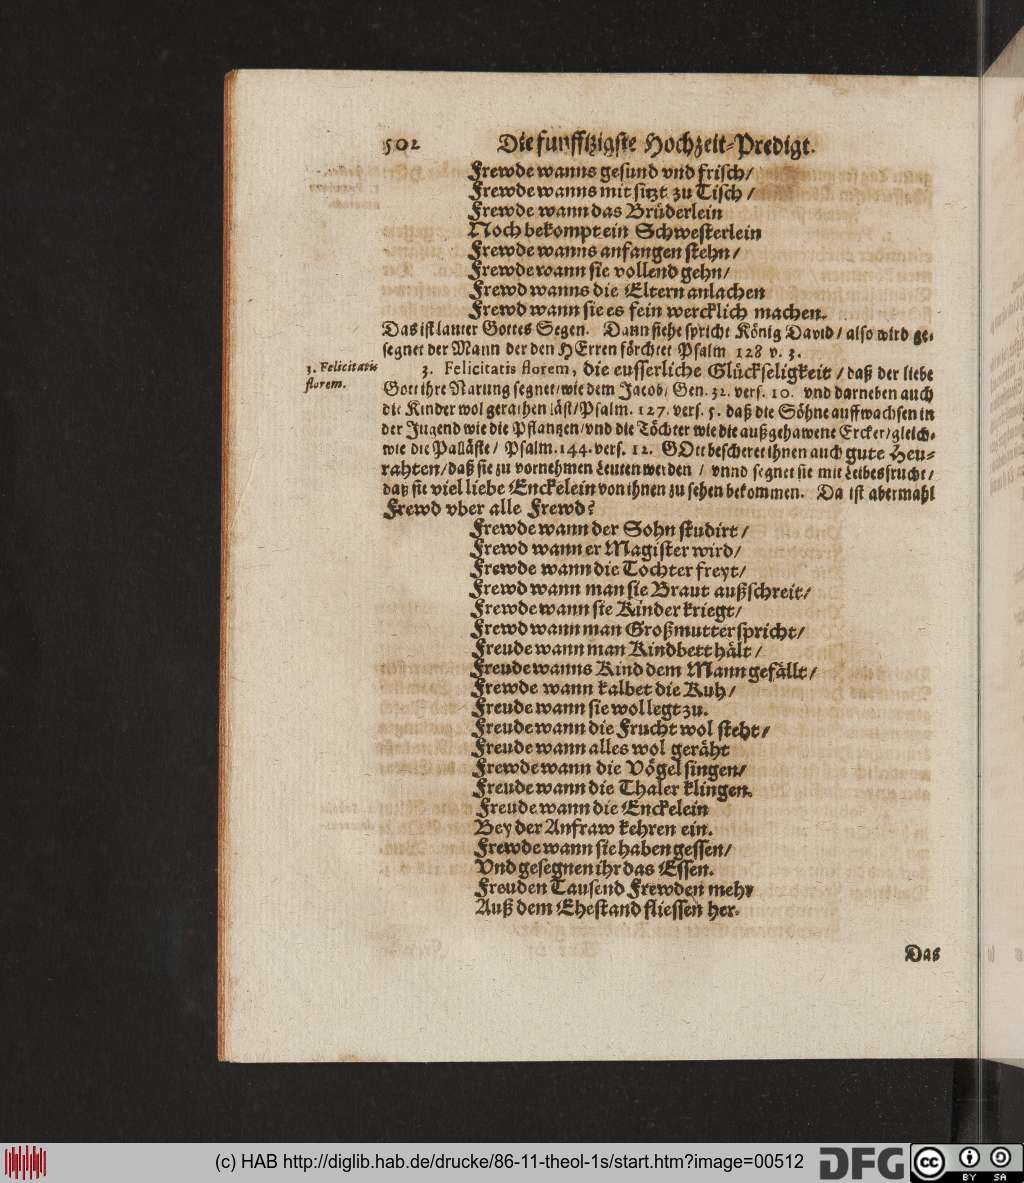 502 Die funfftzigste Hochzeit-Predigt.
Frewde wanns gesund vnd frisch/
Frewde wanns mit sitzt zu Tisch /
Frewde wann das Brüderlein
Noch bekompt ein Schwesterlein
Frewde wanns anfangen stehn/
Frewde wann sie vollend gehn/
Frewd wanns die Eltern anlachen
Frewd wann sie es fein wercklich machen.
Das ist lauter Gottes Segen. Dann siehe spricht König David / also wird ge-
segnet der Mann der den HErren förchtet Psalm 128 v. 3.
3. Felicitatis
florem.
3. Felicitatis florem, die eusserliche Glückseligkeit / daß der liebe
Gott ihre Narung segnet/wie dem Jacob/ Gen. 32. vers. 10. vnd darneben auch
die Kinder wol gerathen läst/Psalm. 127. vers. 5. daß die Söhne auffwachsen in
der Jugend wie die Pflantzen/vnd die Töchter wie die außgehawene Ercker/gleich-
wie die Palläste / Psalm. 144. vers. 12. GOtt bescheret ihnen auch gute Heu-
rahten/daß sie zu vornehmen Leuten werden / vnnd segnet sie mit Leibesfrucht/
daß sie viel liebe Enckelein von ihnen zu sehen bekommen. Da ist abermahl
Frewd vber alle Frewd?
Frewde wann der Sohn studirt/
Frewd wann er Magister wird/
Frewde wann die Tochter freyt/
Frewd wann man sie Braut außschreit/
Frewde wann sie Kinder kriegt/
Frewd wann man Großmutter spricht/
Freude wann man Kindbett hält /
Freude wanns Kind dem Mann gefällt/
Frewde wann kalbet die Kuh/
Freude wann sie wol legt zu.
Freude wann die Frucht wol steht/
Freude wann alles wol geräht
Frewde wann die Vögel singen/
Freude wann die Thaler klingen.
Freude wann die Enckelein
Bey der Anfraw kehren ein.
Frewde wann sie haben gessen/
Vnd gesegnen ihr das Essen.
Freuden Tausend Frewden mehr
Auß dem Ehestand fliessen her.
Das
(c) HAB http://diglib.hab.de/drucke/86-11-theol-1s/start.htm?image=00512
DFG
cc BY SA